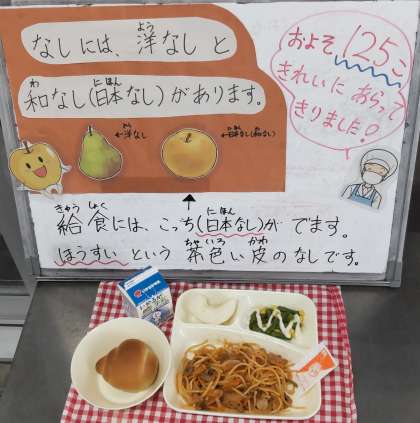 なしには、洋なしと
和なし(日本なし)があります。
およそ125こ
きれいにあらって
きりました!
←洋なし
←日本なし(和なし)
給食には、こっち(日本なし)がでます。
ほうすいという茶色い皮のなしです。